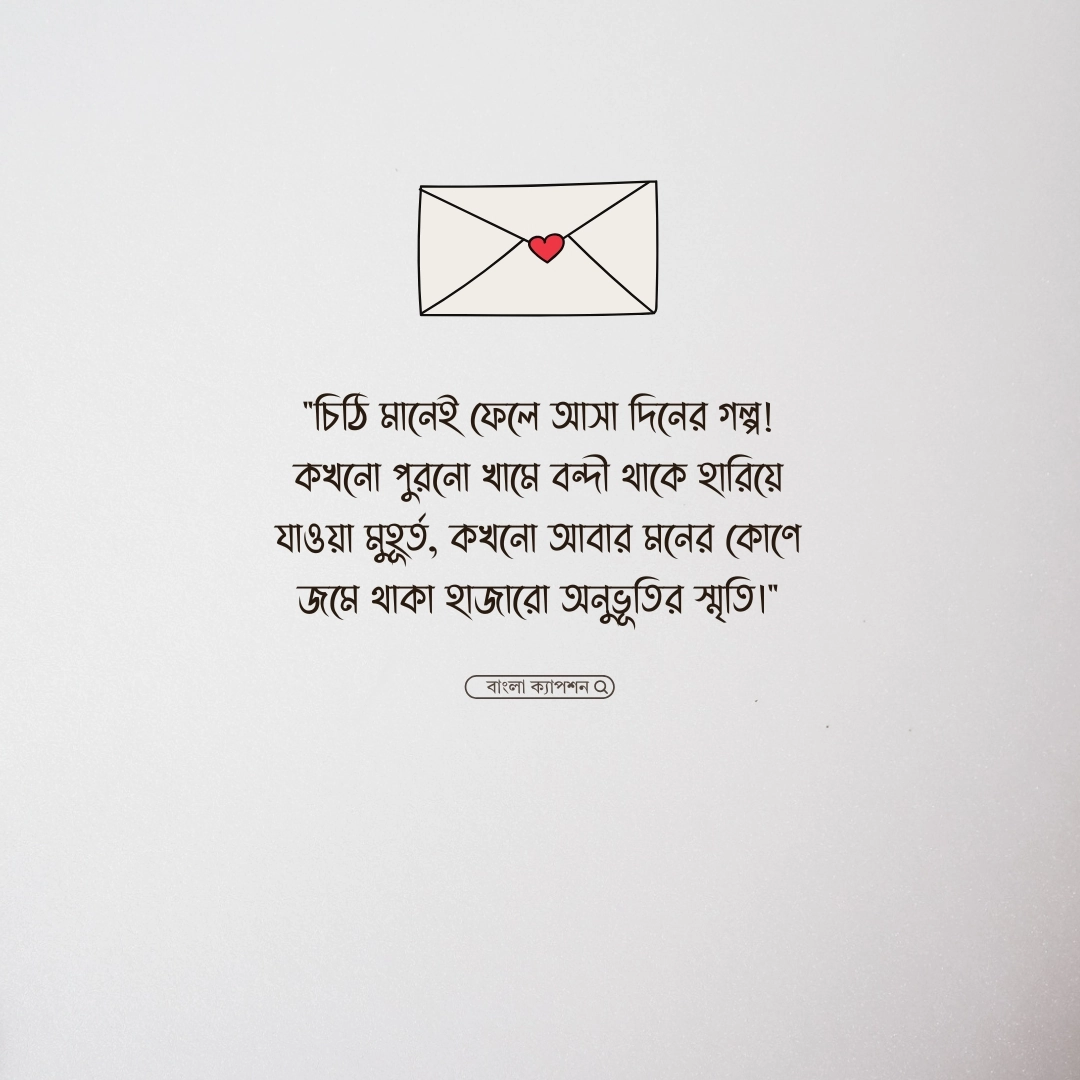 "চিঠি মানেই ফেলে আসা দিনের গল্প!
কখনো পুরনো খামে বন্দী থাকে হারিয়ে
যাওয়া মুহূর্ত, কখনো আবার মনের কোণে
জমে থাকা হাজারো অনুভূতির স্মৃতি।"
বাংলা ক্যাপশন